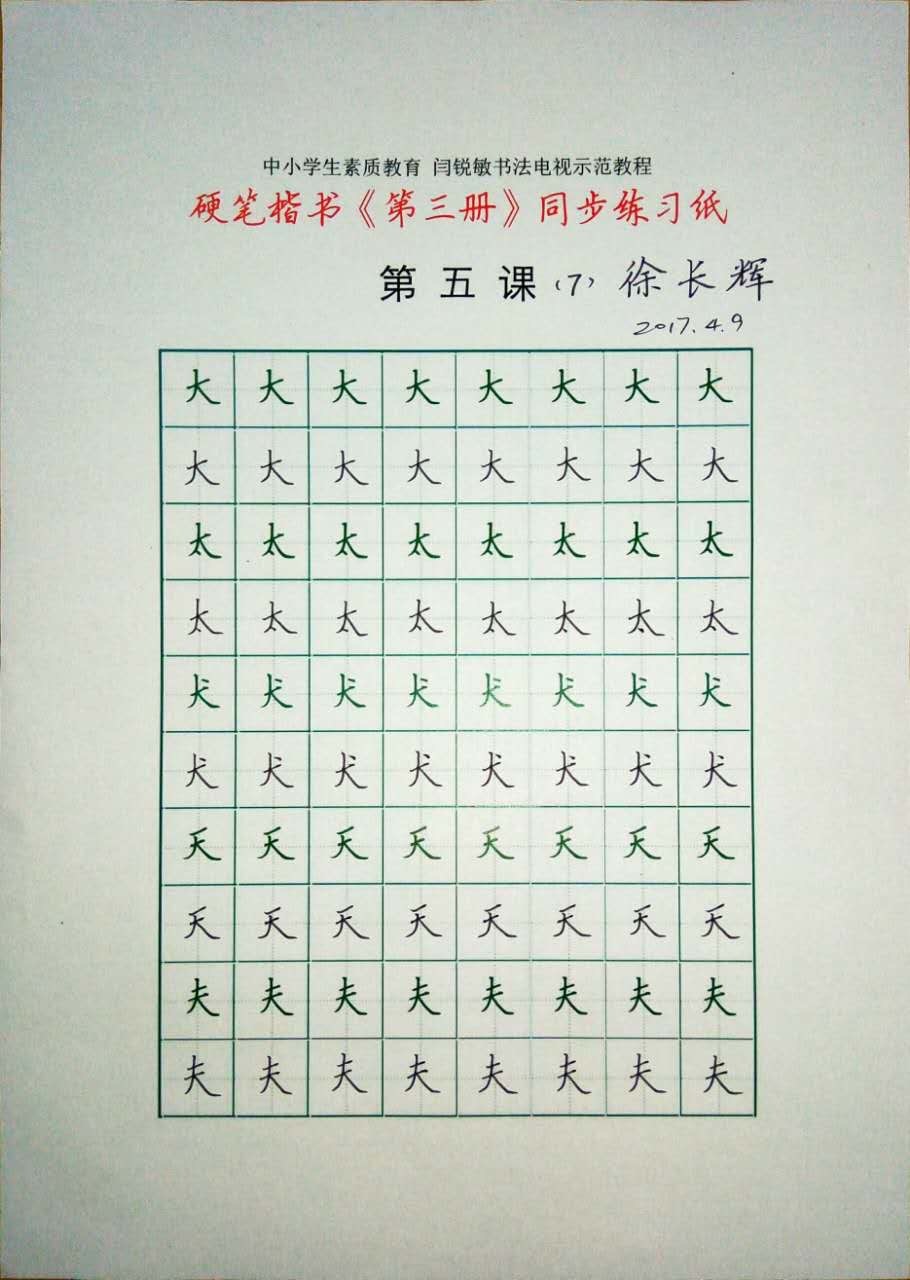 中小学生素质教育 闫锐敏书法电视示范教程
硬笔楷书《第三册》同步练习纸
第五课（7）徐长辉
2017.4.9
大大大大大大大大
大大大大大大大大
太太太太太太太太
太太太太太太太太
犬犬犬犬犬犬犬犬
犬犬犬犬犬犬犬犬
天天天天天天天天
天天天天天天天天
夫夫夫夫夫夫夫夫
夫夫夫夫夫夫夫夫